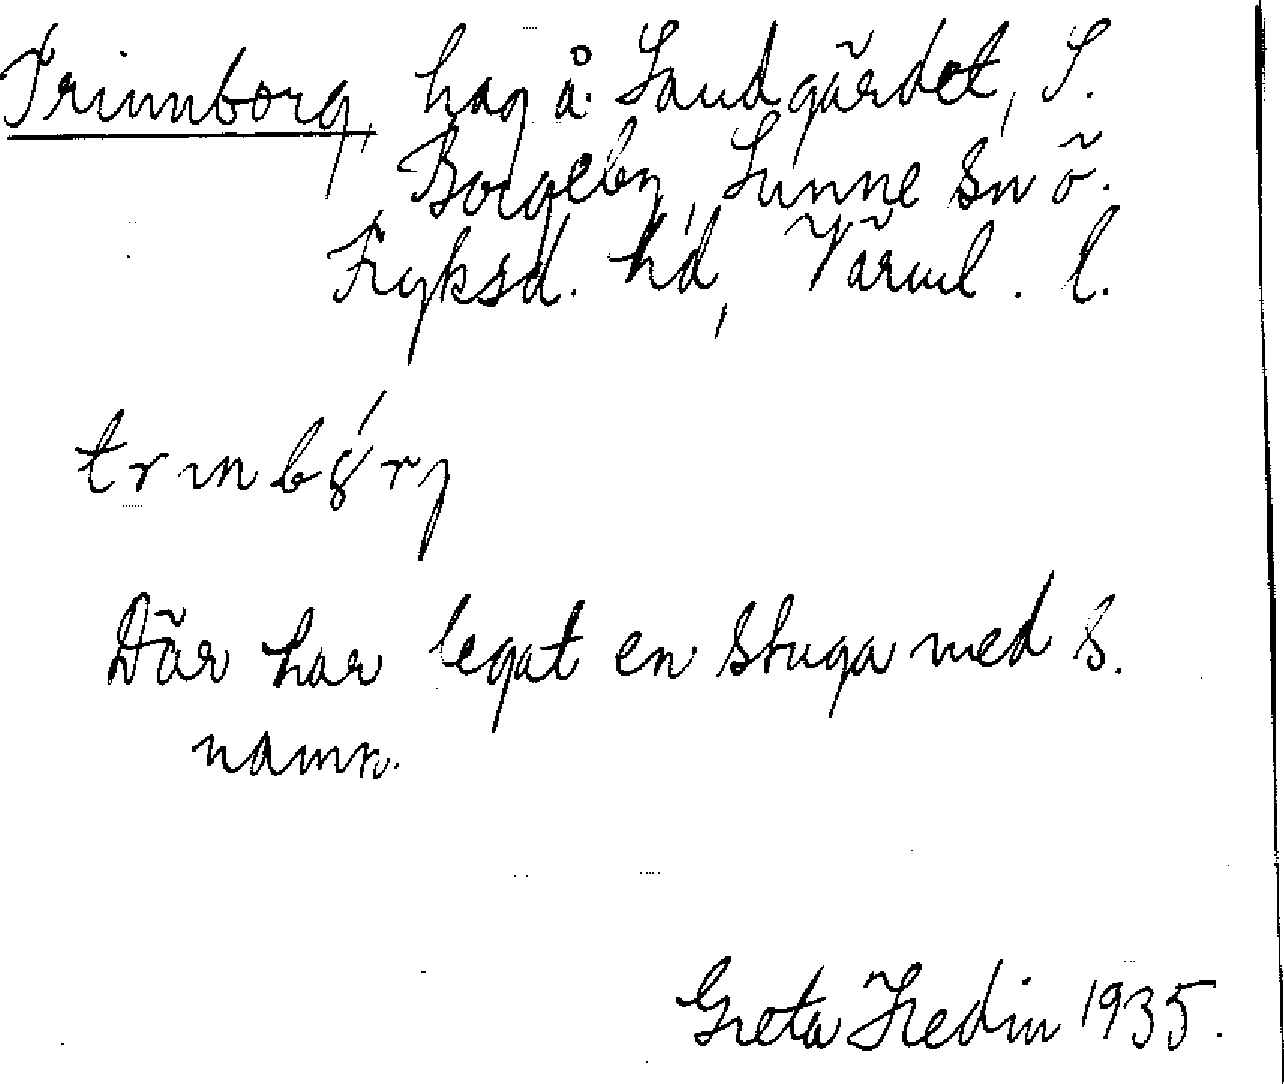 Trinnborg, hag å. Sandgärdet, S.
Borgeby, Sunne sn ö.
Fryksd. hd, Värml. l.
trinbǫ́rj
Där har legat en stuga med s.
namn.
Greta Hedin 1935.